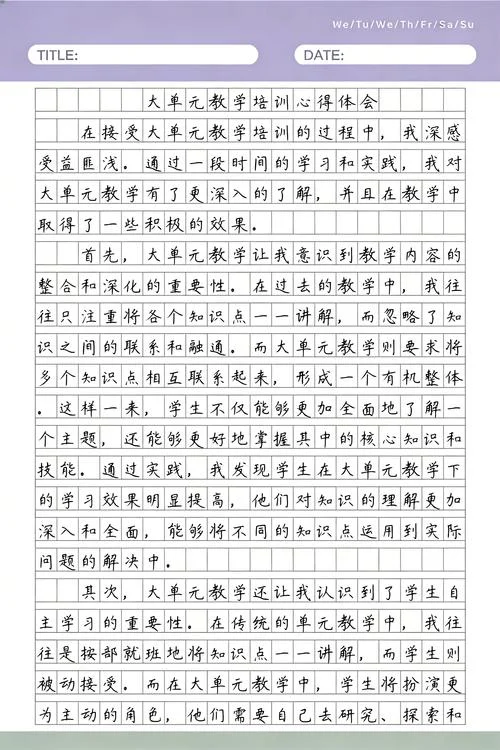 We/Tu/We/Th/Fr/Sa/Su
TITLE:
DATE:
大单元教学培训心得体会
在接受大单元教学培训的过程中，我深感
受益匪浅。通过一段时间的学习和实践，我对
大单元教学有了更深入的了解，并且在教学中
取得了一些积极的效果。
首先，大单元教学让我意识到教学内容的
整合和深化的重要性。在过去的教学中，我往
往只注重将各个知识点一一讲解，而忽略了知
识之间的联系和融通。而大单元教学则要求将
多个知识点相互联系起来，形成一个有机整体
。这样一来，学生不仅能够更加全面地了解一
个主题，还能够更好地掌握其中的核心知识和
技能。通过实践，我发现学生在大单元教学下
的学习效果明显提高，他们对知识的理解更加
深入和全面，能够将不同的知识点运用到实际
问题的解决中。
其次，大单元教学还让我认识到了学生自
主学习的重要性。在传统的单元教学中，我往
往是按部就班地将知识点一一讲解，而学生则
被动接受。而在大单元教学中，学生将扮演更
为主动的角色，他们需要自己去研究、探索和